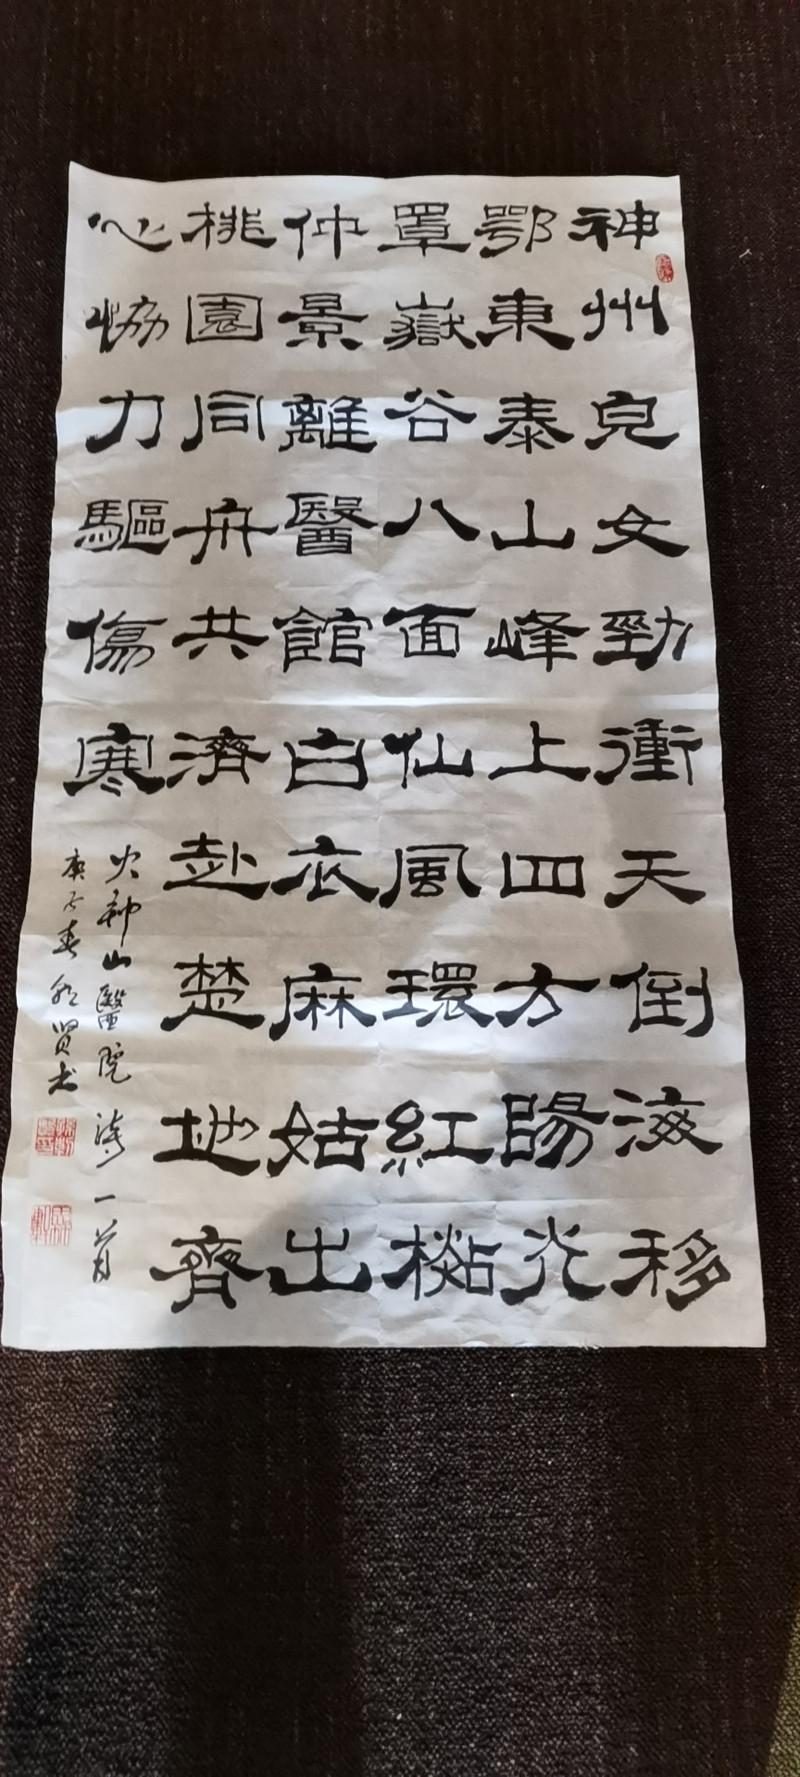 神州皃女勁衝天倒海移
鄂東泰山峰上四方陽光
罩嶽谷八面仙風環紅
仲景離醫館白衣麻姑出
桃園同舟共濟赴楚地齊
心協力驅傷寒
火神山醫院 詩一首
庚子春 賢书